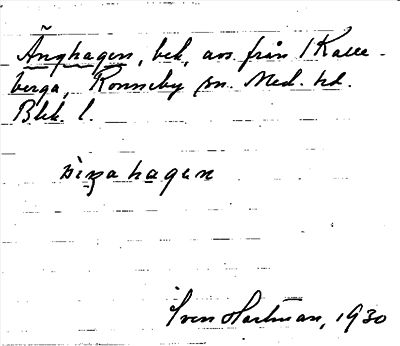 Änghagen, beb, avs från 1 Kalle-
berga, Ronneby sn. Med. hd.
Blek. l.
hagen
Sven Hartman, 1930